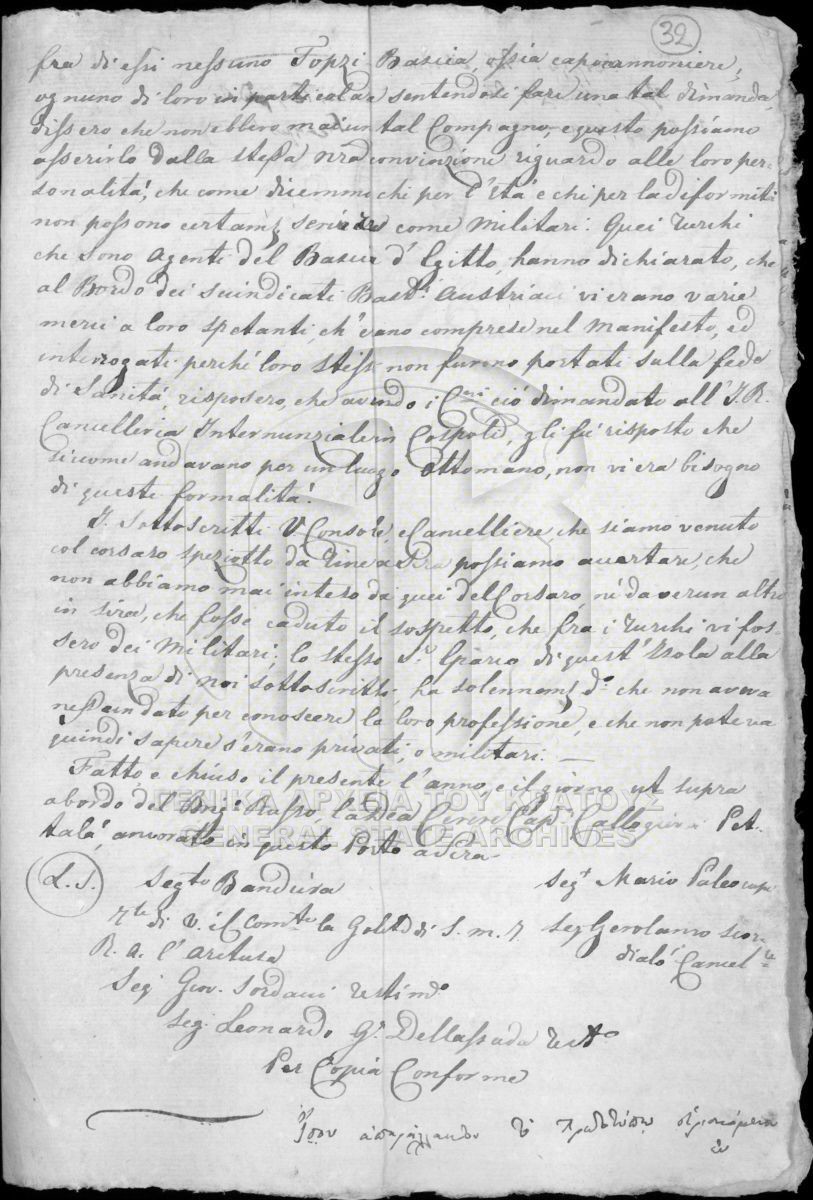 32
fra di essi nessuno Topzi Bascia, ossia capocannoniere,
ognuno di loro in particolare sentendosi fare una tal dimanda,
dissero che non ebbero mai un tal Compagno, e questo possiamo
asserirlo dalla stessa nra convinzione riguardo alle loro per-
sonalità, che come dicemmo chi per l'età e chi per la diformità
non possono certam servire come Militari. Quei Turchi
che sono Agenti del Bascia d'Egitto, hanno dichiarato, che
al Bordo dei suindicati Bast.i Austriaci vi erano varie
merci a loro spetanti, ch'erano comprese nel Manifesto, ed
interrogati, perchè loro stessi non furono portati sulla fede
di Sanità, risposero, che avendo i ciò dimandato all'I. R.
Cancelleria Internunziale in Cospoli, gli fù risposto che
siccome andavano per un luogo Ottomano, non vi era bisogno
di queste formalità.
I Sottoscritti V. Console e Cancelliere, che siamo venuto
col corsaro speziotto da Tine a Sira possiamo accertare, che
non abbiamo mai inteso da quei del Corsaro, nè da verun altro
in sira, che fosse caduto il sospetto, che fra i Turchi vi fos-
sero dei Militari; lo stesso S.r Eparco di quest'Isola alla
presenza di noi sottoscritti, ha solennam d.o che non aveva
nessun dato per conoscere la loro professione, e che non poteva
quindi sapere s'erano privati, o militari. —
Fatto, e chiuso il presente l'anno, e il giorno ut supra
abordo del Brig.o Russo, la Dea Cerere Cap.n Pet-
talà, ancorato in questo Porto a Sira
L. S. Segto Bandiera Seg.t Mario Paleocapa
di V. il Com.te la Goletta di S. M. I. Seg Gerolamo Scor-
R. A. l'Aretusa dialò Cancel.re
Seg Giov. Sordaci testim.o
Seg. Leonardo G. Dellassuda Test.o
Per Copia Conforme
ΓΕΝΙΚΑ ΑΡΧΕΙΑ ΤΟΥ ΚΡΑΤΟΥΣ
GENERAL STATE ARCHIVES